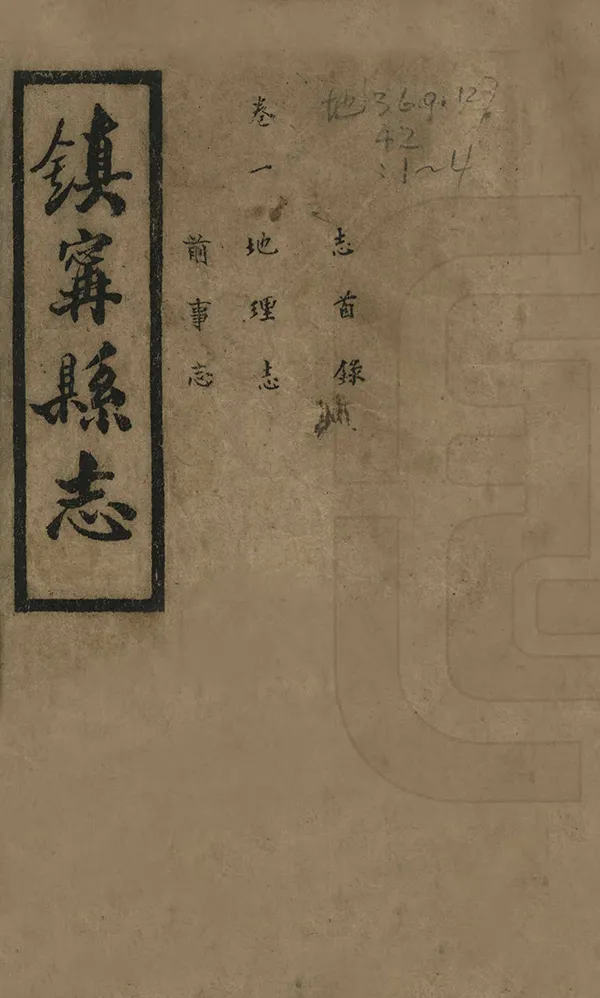 地369.127
42
:1~4
志首錄
卷一 地理志
前事志
鎮甯縣志